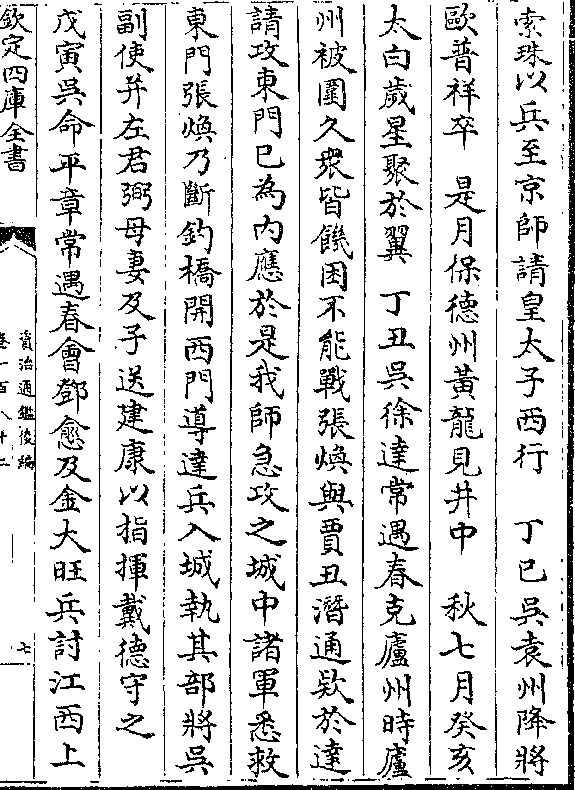 索珠以兵至京師請皇太子西行　丁巳吳袁州降將
歐普祥卒　是月保德州黃龍見井中　秋七月癸亥
太白歲星聚於翼　丁丑吳徐達常遇春克廬州時廬
州被圍久衆皆饑困不能戰張煥與賈丑潛通欵於達
請攻東門已為内應於是我師急攻之城中諸軍悉救
東門張煥乃斷釣橋開西門導達兵入城執其部將吳
副使并左君弼母妻及子送建康以指揮戴德守之
戊寅吳命平章常遇春會鄧愈及金大旺兵討江西上
欽定四庫全書
資治通鑑後編
卷一百八十二
七